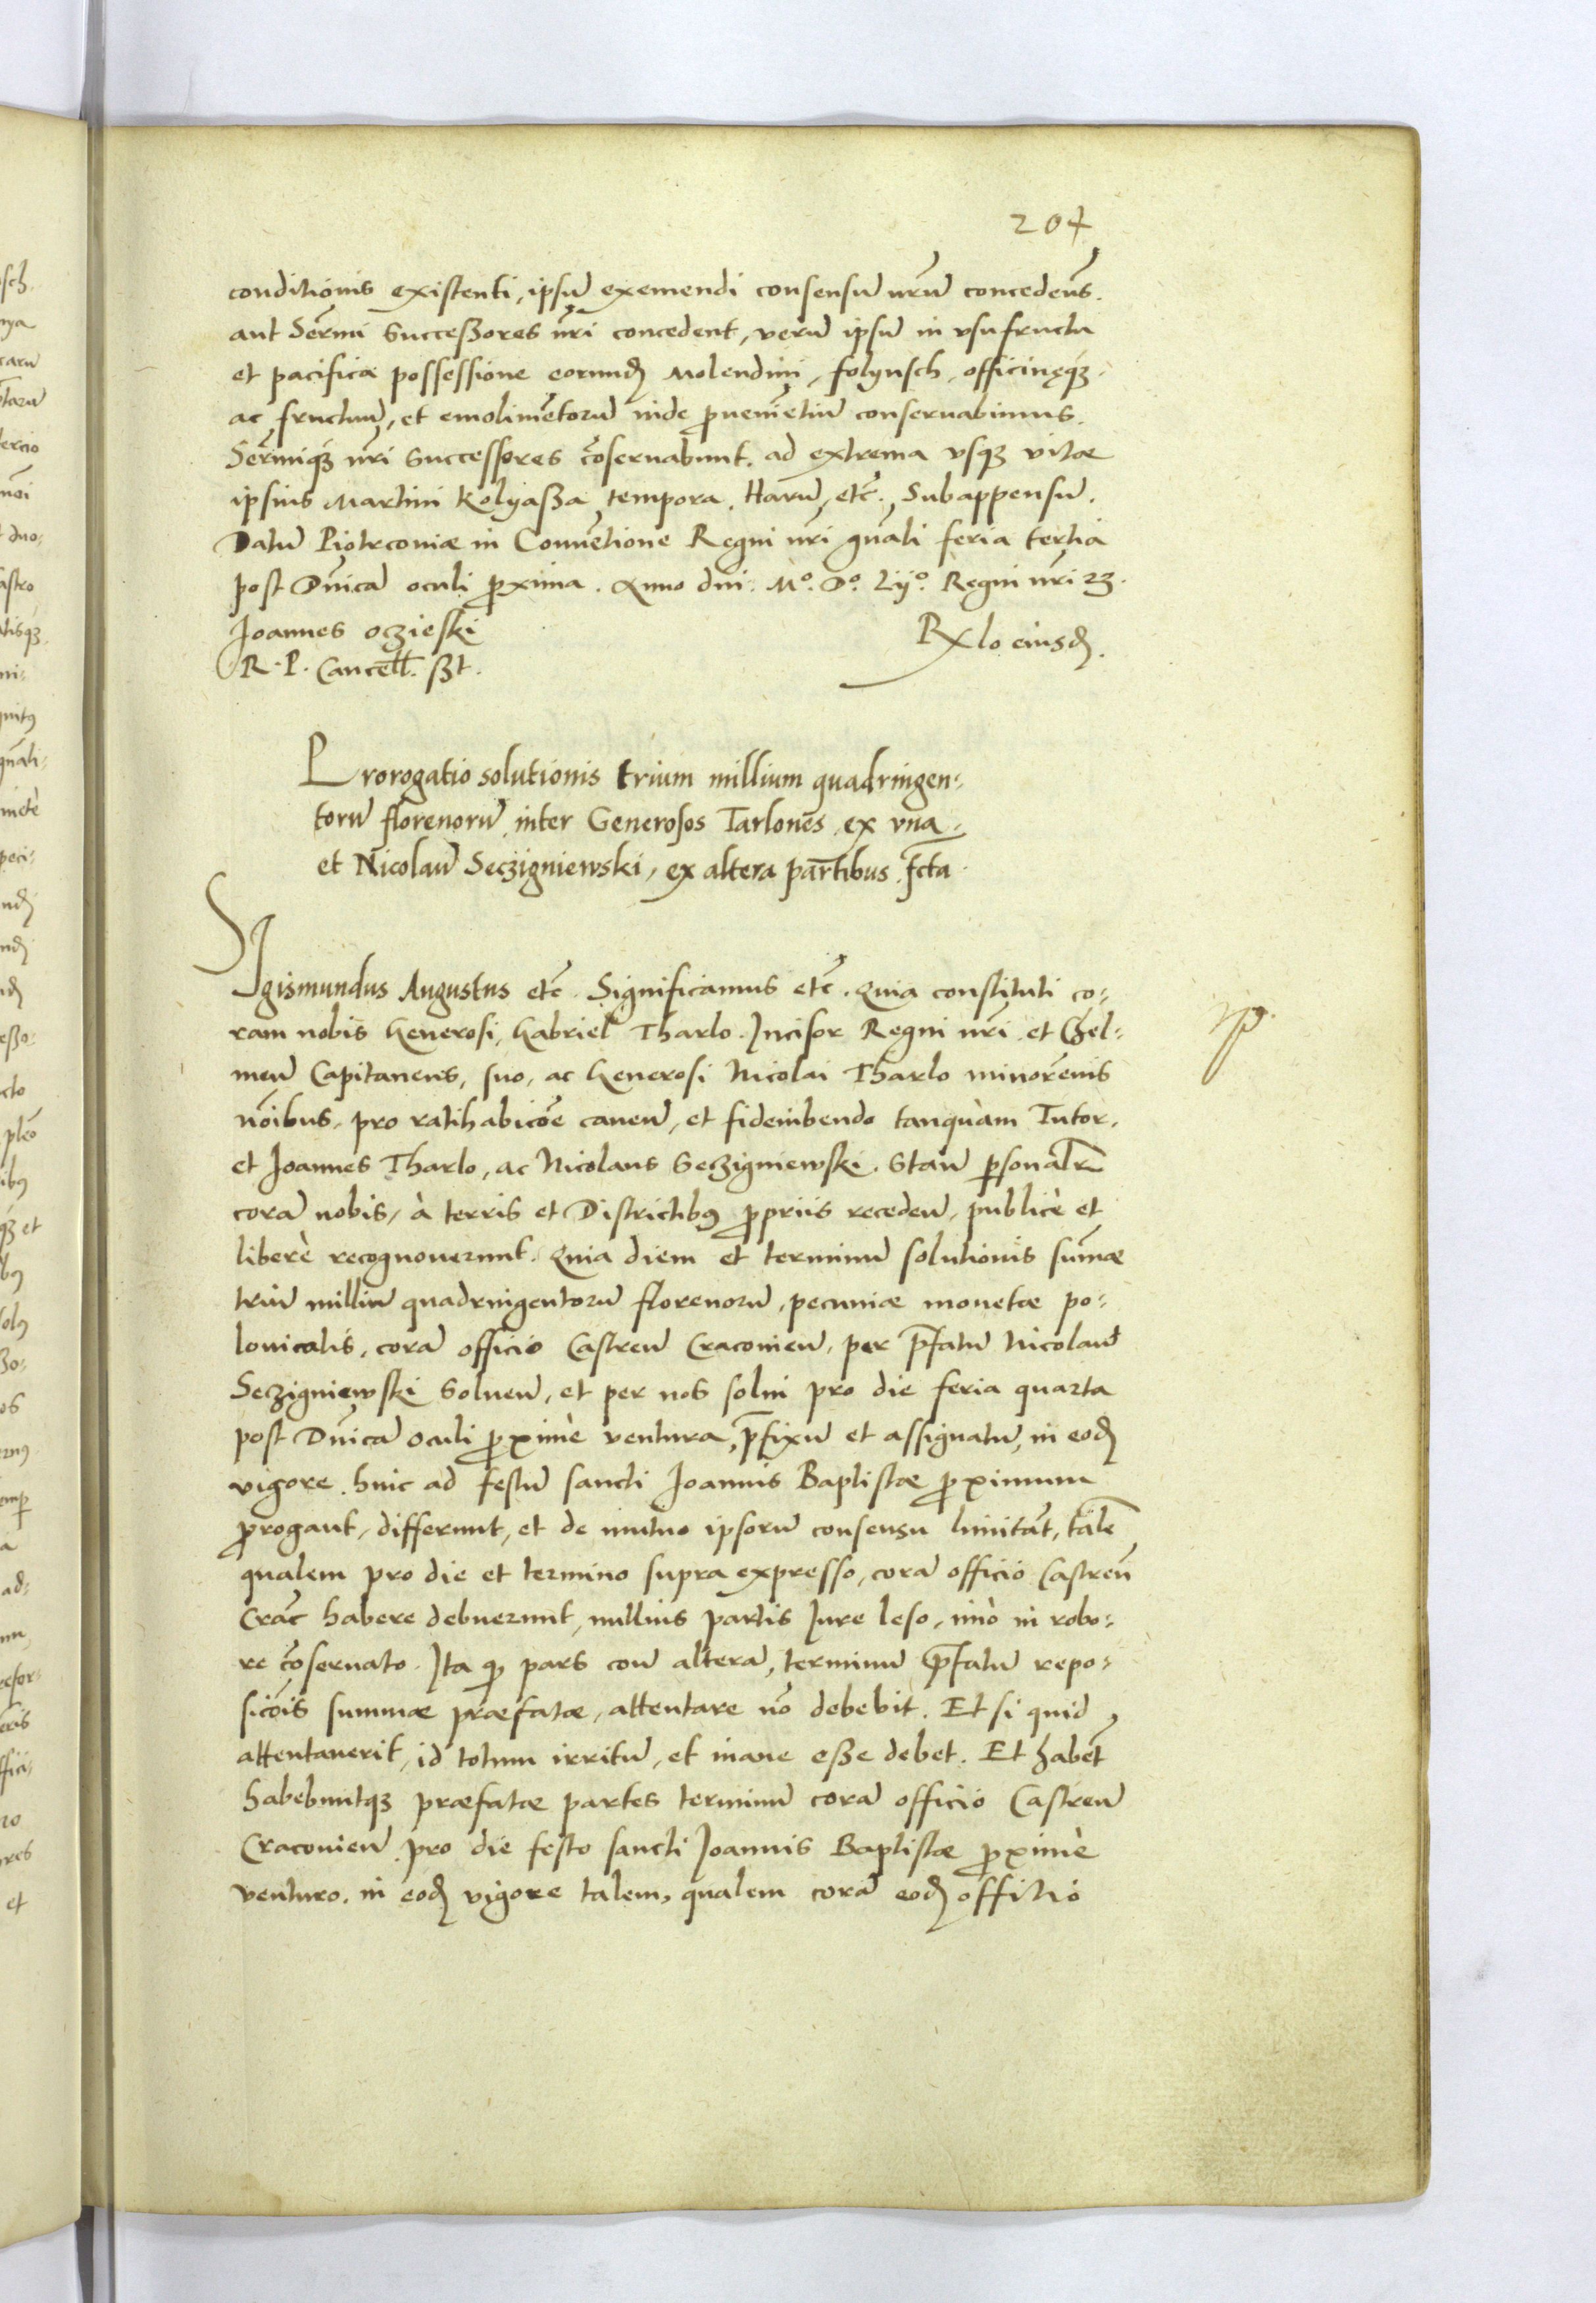 204
conditionis existenti, ipsũ eximendi consensũ nr̃ũ concedeñs.
aut Serm̃i Succeßores nr̃i concedent, verũ ipsũ in vsufructu
et pacifica possessione eorundẽ Molendini, folynsch, officinęq́ꝫ.
ac fructuũ, et emolimẽtorũ inde ꝓvenietiũ conservabimus.
Serm̃iq́ꝫ nr̃i Successores cõservabunt. ad extrema vsqꝫ vitae
ipsius Martini Kolyaßa tempora. Harũ, etc̃. Subappensũ.
Datũ Piotrconiæ in Conventione Regni nr̃i gñali feria tertia
post Dñicã oculi ꝓxima. Anno dni. Mº. Dº. Lijº. Regni nr̃i 23.
Joannes oczieski
R. P. Cancell. ßt.
Rx̃lo eiusdẽ.
Prorogatio solutionis trium millium quadringen-
torũ florenorũ inter Generosos Tarlones ex vna,
et Nicolaũ Seczigniewski, ex altera partibus fc̃ta.
SIgismundus Augustus etc̃. Significamus etc̃. Quia constituti co-
ram nobis Generosi, Gabriel Tharlo. Incisor Regni nr̃i et Chel-
meñ Capitaneus, suo, ac Generosi Nicolai Tharlo minorẽnis
nõibus, pro ratihabicõe caveñ, et fideiubendo tanquàm Tutor,
et Joannes Tharlo, ac Nicolaus Seczigniewski. Stañ ꝑsonalr̃
corã nobis, à terris et Districtibꝰ ꝓpriis recedeñ, publicè et
liberè recognoverunt. Quia diem et terminũ solutionis sum̃æ
triũ milliũ quadringentorũ florenorũ, pecuniæ monetæ po-
lonicalis, corã officio Castreñ Cracovieñ, per p̃fatũ Nicolaũ
Seczigniewski Solueñ, et per nos solvi pro die feria quarta
post Dñicã oculi ꝓximè ventura, p̃fixũ et assignatũ, in eodẽ
vigore. hinc ad festũ sancti Joannis Baptistæ ꝓximum
ꝓrogant, differunt, et de mutuo ipsorũ consensu limitãt, talẽ
qualem pro die et termino supra expresso, corã officio Castreñ
Crac̃ habere debuerunt, nullius partis Jure leso, imò in robo-
re cõservato. Ita ꝙ pars con̄ alterã, terminũ p̃fatũ repo-
sicõis summæ præfatæ, attentare nõ debebit. Et si quid
attentaverit, id totum irritũ, et inane eße debet. Et habẽt
habebuntqꝫ præfatæ partes terminũ corã officio Castreñ
Cracovieñ pro die festo sancti Joannis Baptistæ ꝓximè
venturo. in eodẽ vigore talem, qualem corã eodẽ offitio